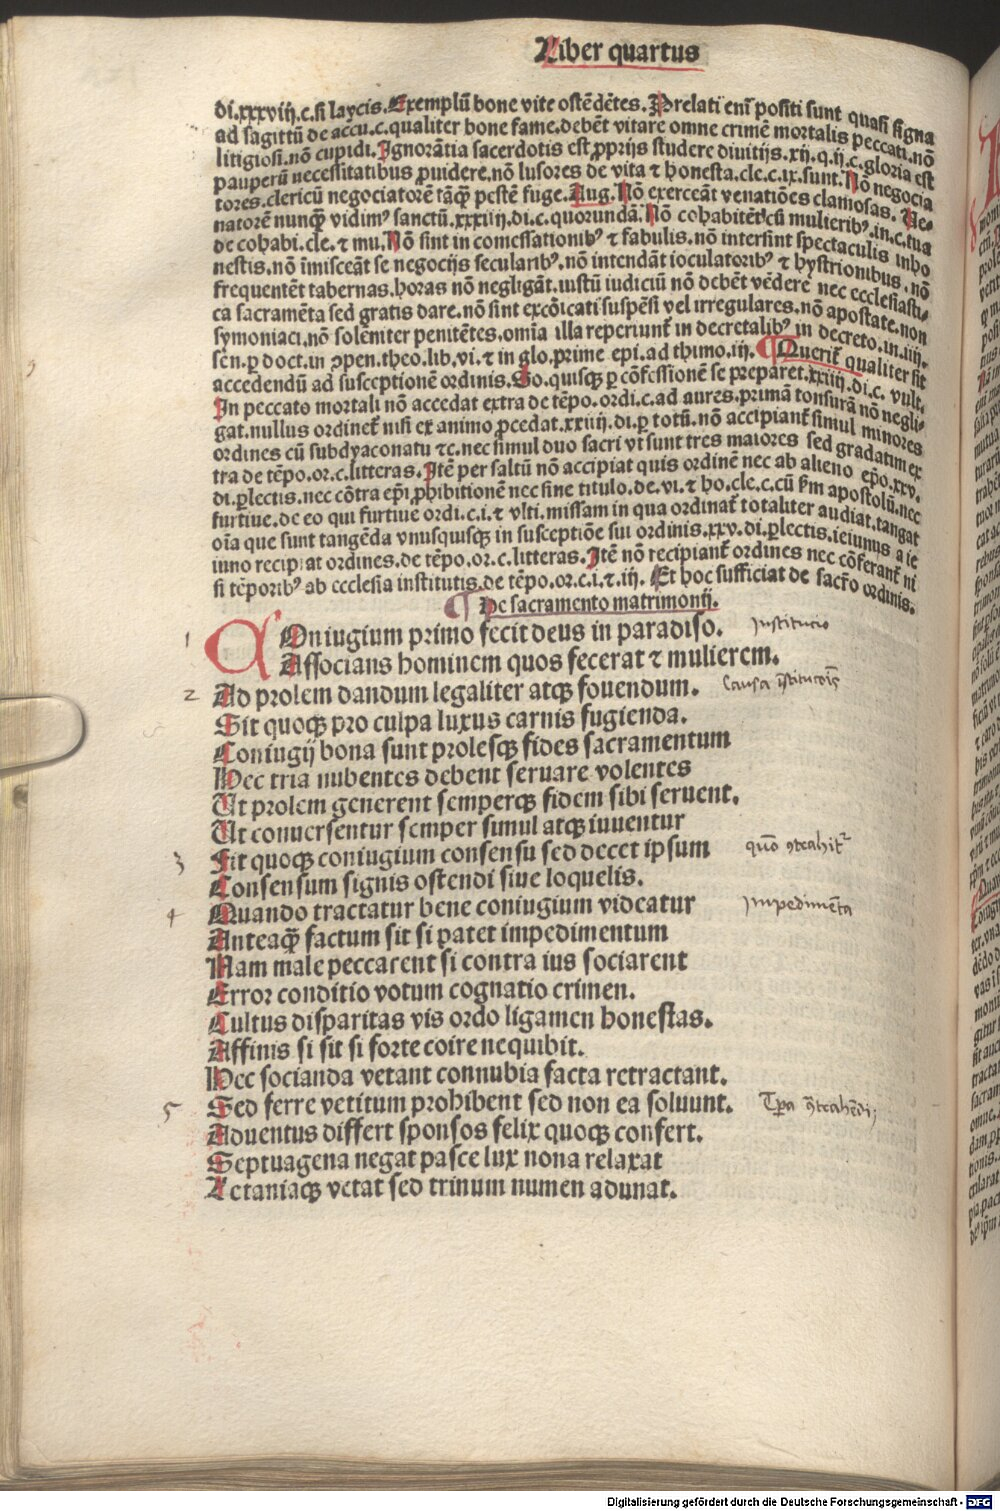 Liber quartus
di.xxxviij.c.si laycis.Exemplū bone vite ostēdētes.Prelati enī positi sunt quasi signa
ad sagittū de accu.c.qualiter bone fame.debēt vitare omne crimē mortalis peccati.nō
litigiosi.nō cupidi.Ignorātia sacerdotis est ꝓprijs studere diuitijs.xij.q.ij.c.gloria est
pauperū necessitatibus ꝓuidere.nō lusores de vita ⁊ honesta.cle.c.ix.sunt.Nō negocia
tores.clericū negociatorē tāꝙ̄ pestē fuge.Aug.Nō exerceāt venatiōes clamosas.Ve⸗
natorē nunꝙ̄ vidimꝰ sanctū.xxxiiij.di.c.quorundā.Nō cohabitēt cū mulieribꝰ.in.c.tua
de cohabi.cle.⁊ mu.Nō sint in comessationibꝰ ⁊ fabulis.nō intersint spectaculis inho
nestis.nō īmisceāt se negocijs secularibꝰ.nō intendāt ioculatoribꝰ ⁊ hystrionibus.nō
frequentēt tabernas.horas nō negligāt.iustū iudiciū nō debēt vēdere nec ecclesiasti⸗
ca sacramēta sed gratis dare.nō sint excōicati suspēsi vel irregulares.nō apostate.non
symoniaci.nō solēniter penitētes.omīa illa reperiunt̄ in decretalibꝰ in decreto.in.iiij.
sen.ꝑ doct.in ꝯpen.theo.lib.vi.⁊ in glo.prime epi.ad thimo.iij.¶Querit̄ qualiter sit
accedendū ad susceptionē ordinis.So.quisqꝫ ꝑ cōfessionē se preparet.xxiiij.di.c. vult.
In peccato mortali nō accedat extra de tēpo.ordi.c.ad aures.primā tonsurā nō negli⸗
gat.nullus ordinet̄ nisi ex animo ꝓcedat.xxiiij.di.ꝑ totū.nō accipiant̄ simul minores
ordines cū subdyaconatu ⁊c.nec simul duo sacri vt sunt tres maiores sed gradatim ex
tra de tēpo.or.c.litteras.Itē per saltū nō accipiat quis ordinē nec ab alieno ep̄o.xxv.
di.ꝑlectis.nec cōtra ep̄i ꝓhibitionē nec sine titulo.de.vi.⁊ ho.cle.c.cū ẜm apostolū.nec
furtiue.de eo qui furtiue ordi.c.i.⁊ vlti.missam in qua ordinat̄ totaliter audiat.tangat
oīa que sunt tangēda vnusquisqꝫ in susceptiōe sui ordinis.xxv.di.ꝑlectis.ieiunus a ie
iuno recipiat ordines.de tēpo.or.c.litteras.Itē nō recipiant̄ ordines nec cōferant̄ ni
si tēporibꝰ ab ecclesia institutis.de tēpo.or.c.i.⁊.iij. Et hoc sufficiat de sacr̄o ordinis.
¶ De sacramento matrimonij.
1 COniugium primo fecit deus in paradiso. institucio
Associans hominem quos fecerat ⁊ mulierem.
2 Ad prolem dandum legaliter atqꝫ fouendum. Causa īstitucōis
Sit quoqꝫ pro culpa luxus carnis fugienda.
Coniugij bona sunt prolesqꝫ fides sacramentum
Hec tria nubentes debent seruare volentes
Ut prolem generent semperqꝫ fidem sibi seruent.
Ut conuersentur semper simul atqꝫ iuuentur
3 Fit quoqꝫ coniugium consensu sed decet ipsum quō ꝯtrahit᷑
Consensum signis ostendi siue loquelis.
4 Quando tractatur bene coniugium videatur Impedimēta
Anteaꝙ̄ factum sit si patet impedimentum
Nam male peccarent si contra ius sociarent
Error conditio votum cognatio crimen.
Cultus disparitas vis ordo ligamen honestas.
Affinis si sit si forte coire nequibit.
Hec socianda vetant connubia facta retractant.
5 Sed ferre vetitum prohibent sed non ea soluunt. Tꝑa ꝯtrahēdi
Aduentus differt sponsos felix quoqꝫ confert.
Septuagena negat pasce lux nona relaxat
Letaniaqꝫ vetat sed trinum numen adunat.
Digitalisierung gefördert durch die Deutsche Forschungsgemeinschaft - DFG